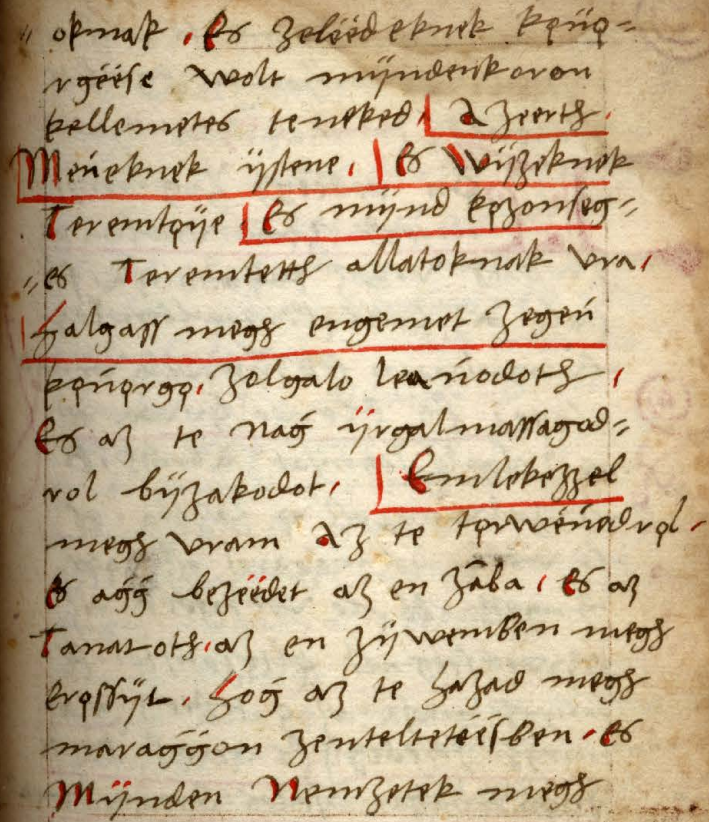 oknak . Es zeleedeknek kqnq=
rgeese wolt mÿndenkoron
kellemetes teneked. A zeerth.
Meńeknek ÿstene. Es wÿzeknek
Teremtqÿe Es mÿnd kqzonseg=
=es Teremtetth allatoknak vra.
halgass megh engemet zegeń
kqńqrgq. zolgalo leańodoth.
Es az te nag ÿrgalmassagod=
rol bÿzakodot. Emlekezzel
megh vram Az te tqrweńedrql.
Es agg bezeedet az en zaba. Es az
Tanatoth. az en zÿwemben megh
Erqssÿt. hog az te hazad megh
maraggon zentelteteesben. es
Mÿnden Nemzetek megh